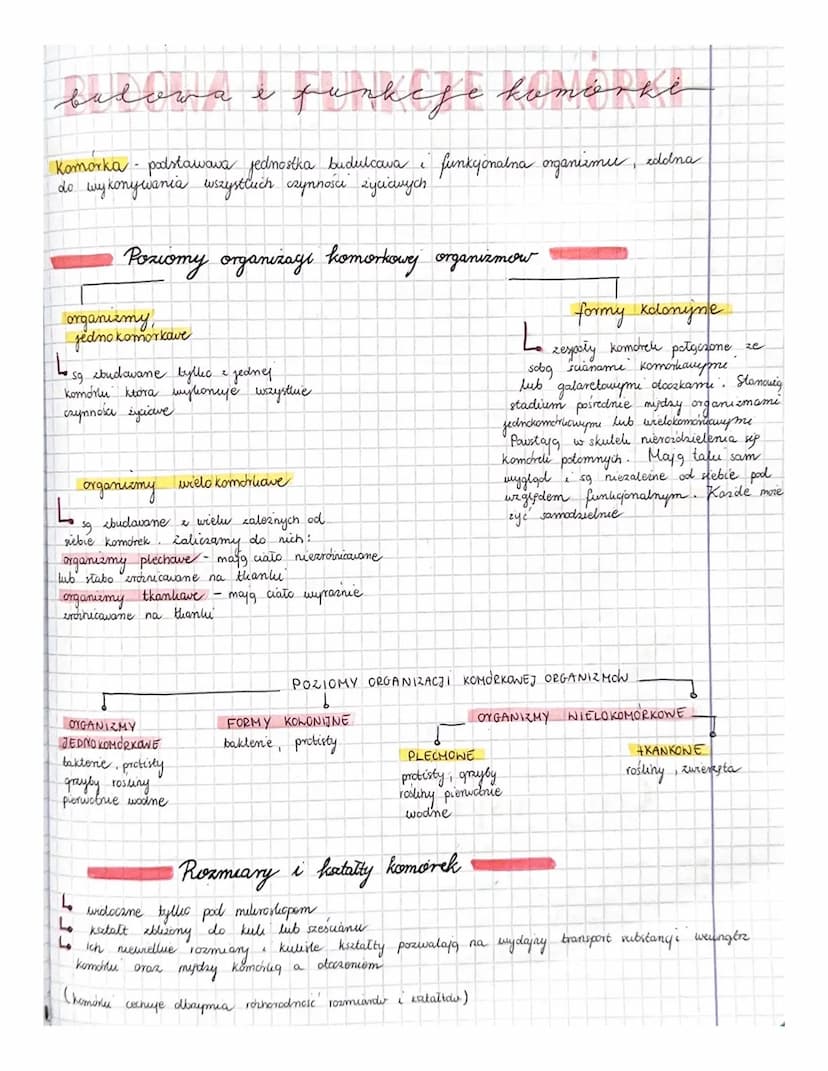 BUDOWA I FUNKCJE KOMÓRKI
budowa i funkcje komórki
Komórka - podstawowa jednostka budulcowa i funkcjonalna organizmu, zdolna
do wykonywania wszystkich czynności życiowych
Poziomy organizacji komórkowej organizmów
organizmy
jednokomórkowe
są zbudowane tylko z jednej
komórki która wykonuje wszystkie
czynności życiowe
formy kolonijne
zespoły komórek połączone ze
sobą ścianami komórkowymi
lub galaretowymi otoczkami. Stanowią
stadium pośrednie między organizmami
jednokomórkowymi lub wielokomórkowymi
Powstają w skutek nierozdzielenia się
komórek potomnych. Mają taki sam
wygląd i są niezależne od siebie pod
względem funkcjonalnym. Każde może
żyć samodzielnie
organizmy wielokomórkowe
są zbudowane z wielu zależnych od
siebie komórek. Zaliczamy do nich:
organizmy plechowe - mają ciało niezróżnicowane
lub słabo zróżnicowane na tkanki
organizmy tkankowe - mają ciało wyraźnie
zróżnicowane na tkanki
POZIOMY ORGANIZACJI KOMÓRKOWEJ ORGANIZMÓW
ORGANIZMY
JEDNOKOMÓRKOWE
bakterie, protisty
grzyby rośliny
pierwotnie wodne
FORMY KOLONIJNE
bakterie, protisty
ORGANIZMY WIELOKOMÓRKOWE
PLECHOWE
protisty, grzyby
rośliny pierwotnie
wodne
TKANKOWE
rośliny, zwierzęta
Rozmiary i kształty komórek
widoczne tylko pod mikroskopem
kształt zbliżony do kuli lub sześcianu
ich niewielkie rozmiary i kuliste kształty pozwalają na wydajny transport substancji wewnątrz
komórki oraz między komórką a otoczeniem
(komórki cechuje olbrzymia różnorodność rozmiarów i kształtów)